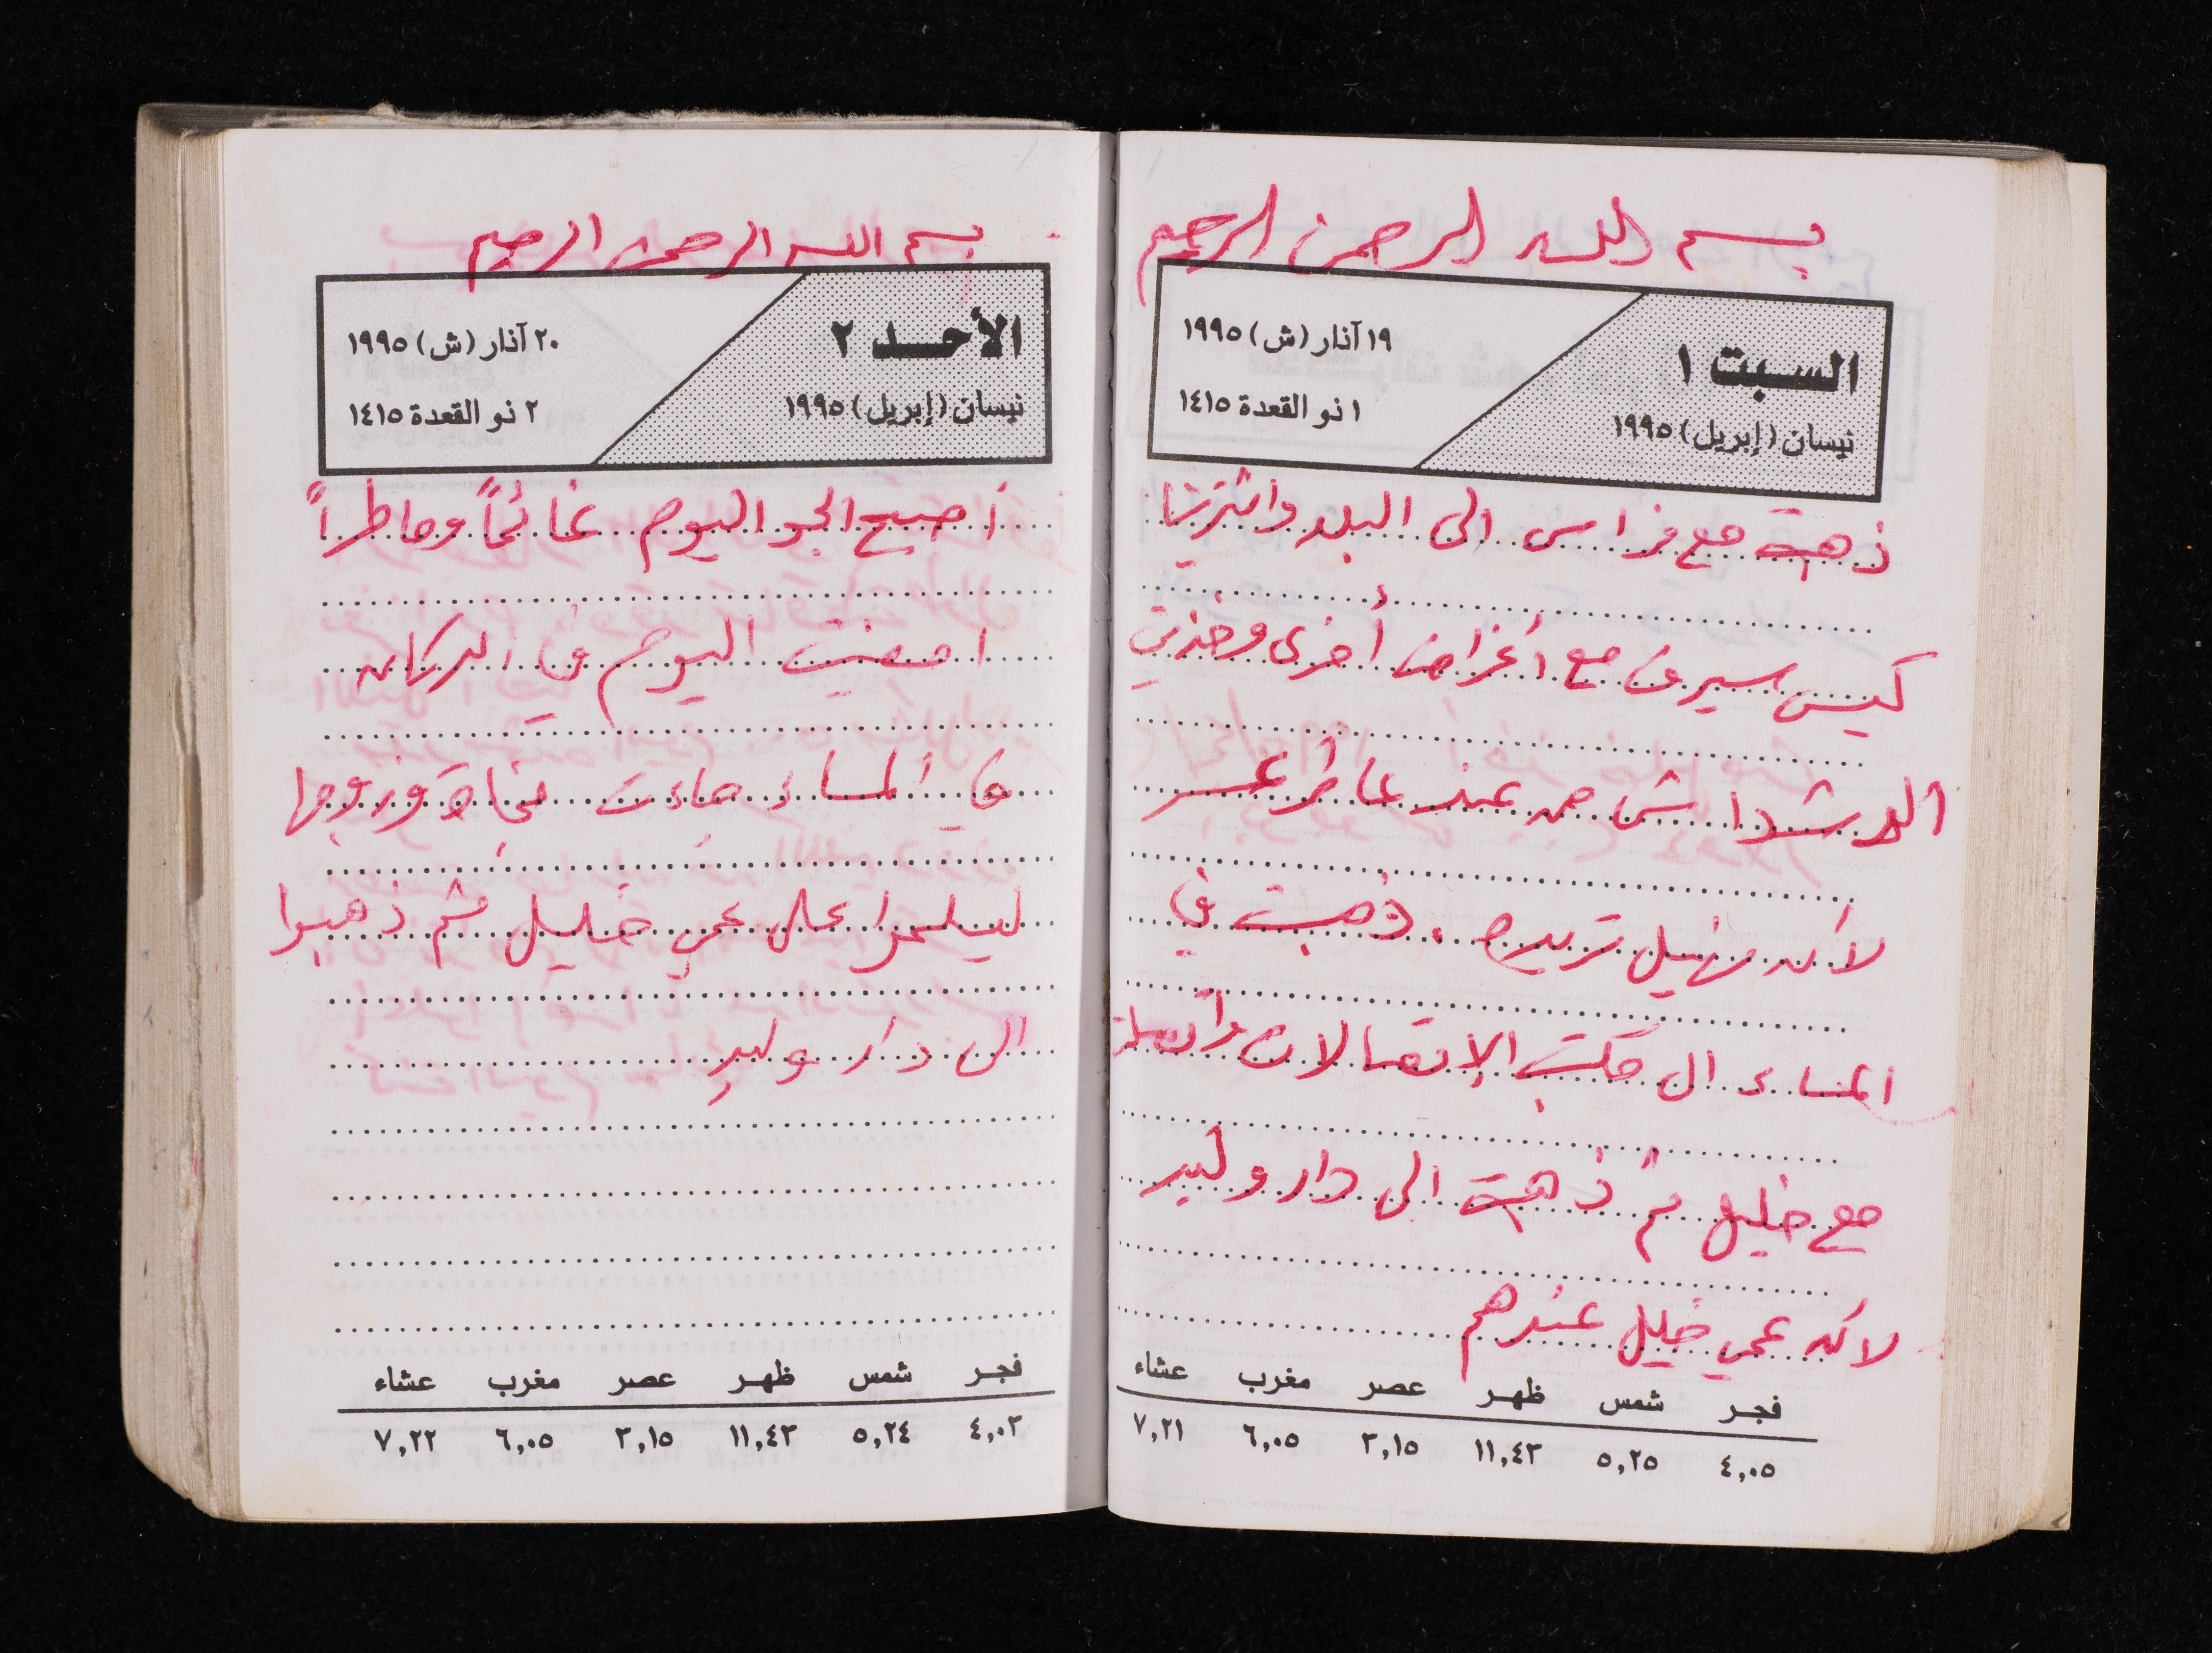 بسم الله الرحمن الرحيم
السبت ١
نيسان (إبريل) ١٩٩٥
١٩ آذار (ش) ١٩٩٥
١ ذو القعدة ١٤١٥
ذهبت مع فراس الى البلد واشترينا
كيس سيرف مع أغراض أخرى وخذيت
الدشداش من عند عاطر
لأنه تريده . ذهبت في
المساء الى مكتب الإتصالات واتصلت
مع خليل ثم ذهبت الى دار وليد
لأنه عمي خليل عندهم
فجر شمس ظهر عصر مغرب عشاء
٤,٠٥ ٥,٢٥ ١١,٤٣ ٣,١٥ ٦,٠٥ ٧,٢١
بسم الله الرحمن الرحيم
الأحد ٢
نيسان (إبريل) ١٩٩٥
٢٠ آذار (ش) ١٩٩٥
٢ ذو القعدة ١٤١٥
أصبح الجو اليوم غائماً وماطراً
امضيت اليوم في الدكان
في المساء جاءت نجاة وزوجها
ليسلموا على عمي خليل ثم ذهبوا
الى دار وليد
فجر شمس ظهر عصر مغرب عشاء
٤,٠٣ ٥,٢٤ ١١,٤٣ ٣,١٥ ٦,٠٥ ٧,٢٢